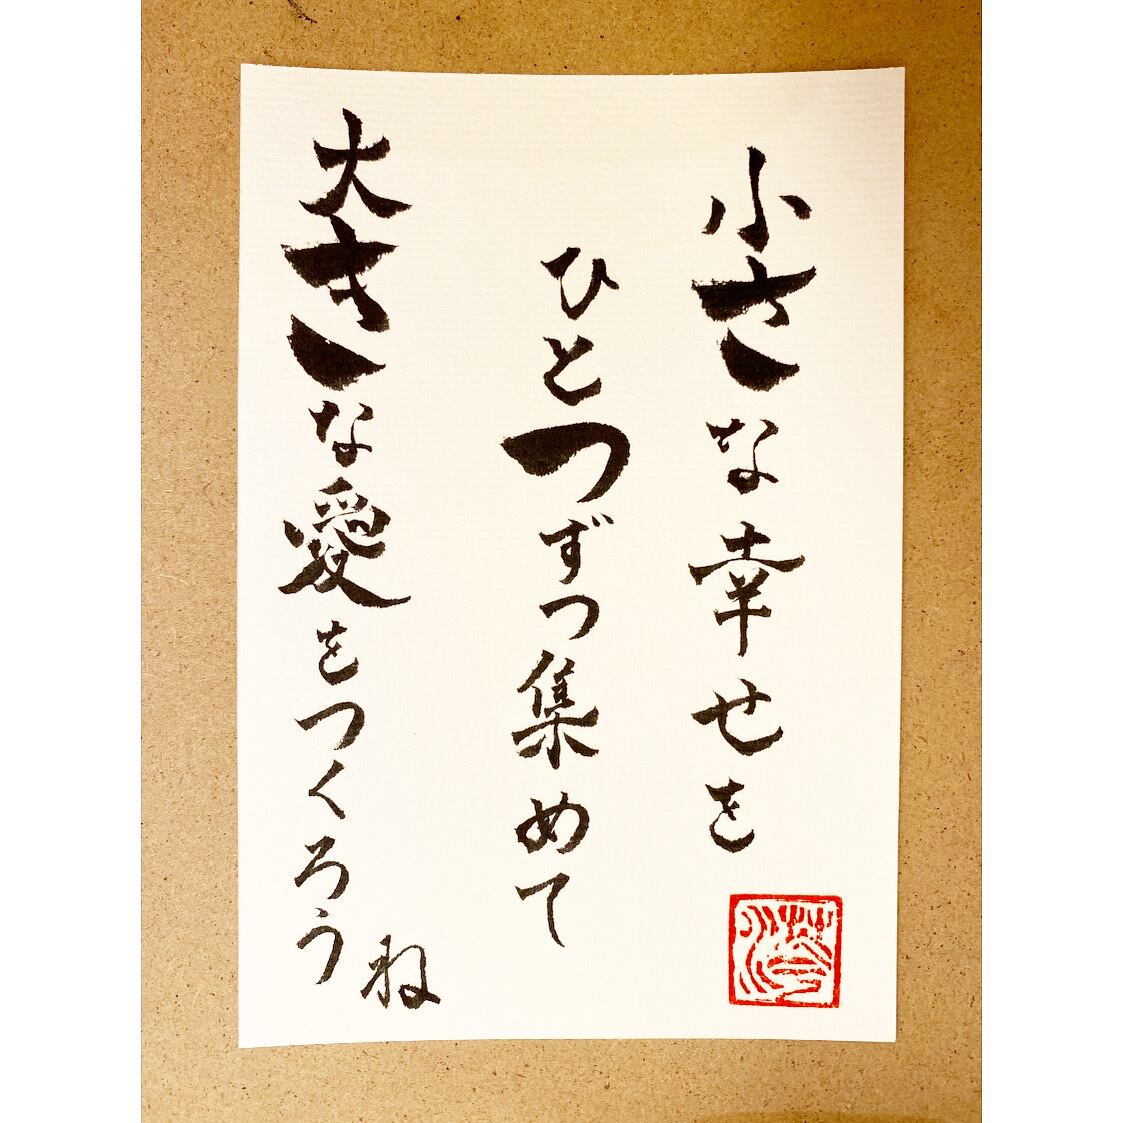 小さな幸せを
ひとつずつ集めて
大きな愛をつくろう
ね